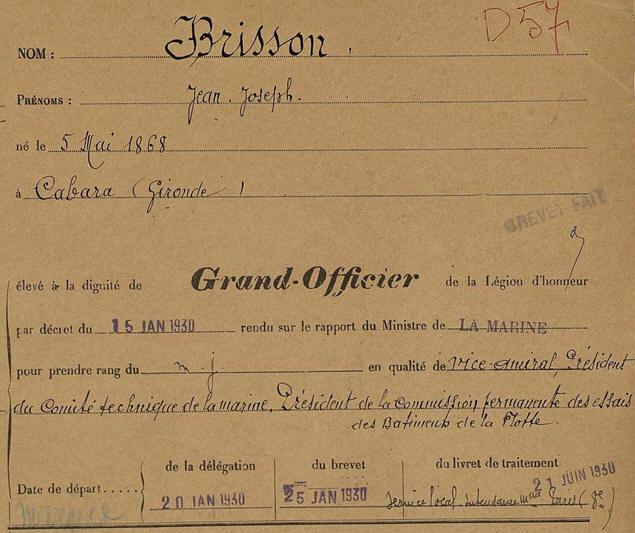 D57
NOM : Brisson,
PRÉNOMS : Jean. Joseph.
né le 5 Mai 1868
à Cabara (Gironde)
BREVET FAIT
élevé à la dignité de Grand-Officier de la Légion d'honneur
par décret du 15 JAN 1930 rendu sur le rapport du Ministre de LA MARINE
pour prendre rang du m. j. en qualité de Vice-amiral, Président
du Comité technique de la marine, Président de la Commission permanente des essais
des Batiments de la Flotte.
de la délégation du brevet du livret de traitement
Date de départ..... 20 JAN 1930 25 JAN 1930 21 JUIN 1930
Service local Paris